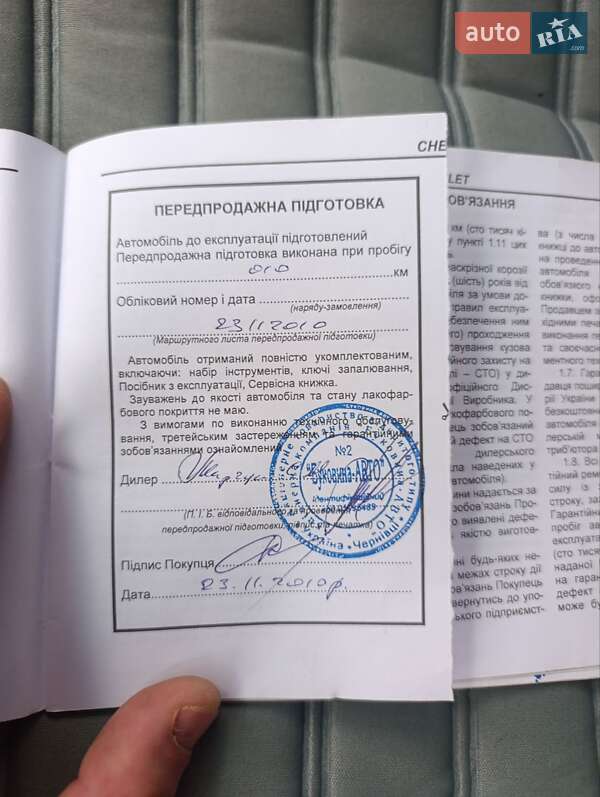 auto RIA .com
CHE
ПЕРЕДПРОДАЖНА ПІДГОТОВКА
Автомобіль до експлуатації підготовлений
Передпродажна підготовка виконана при пробігу
010 км
Обліковий номер і дата
(наряду-замовлення)
23 11 2010
(Маршрутного листа передпродажної підготовки)
Автомобіль отриманий повністю укомплектованим,
включаючи: набір інструментів, ключі запалювання,
Посібник з експлуатації, Сервісна книжка.
Зауважень до якості автомобіля та стану лакофар-
бового покриття не маю.
З вимогами по виконанню технічного обслугову-
вання, третейським застереженням та гарантійними
зобов'язаннями ознайомлений
Дилер
(П. І. Б. відповідального за проведення
передпродажної підготовки, підпис та печатка)
Підпис Покупця
Дата 23.11.2010р.
№2
"Буковина-АВТО"
ідентифікаційний
Україна * Чернівці
LET
ОВ'ЯЗАННЯ
км (сто тисяч кі-
пункті 1.11 цих
наскрізної корозії
(шість) років від
ля за умови до-
правил експлуа-
безпечення ним
го) проходження
вування кузова
йного захисту на
лі – СТО) у ди-
фіційного Дис-
Виробника. У
кофарбового по-
ець зобов'язаний
дефект на СТО
дилерського
наведених у
автомобіля).
нини надається за
зобов'язань Про-
виявлені дефе-
якістю виготов-
ні будь-яких не-
межах строку дії
ов'язань Покупець
вернутись до упо-
ського підприємст-
ва (з числа
книжці до авто
на проведення
автомобіля
обов'язкого
книжки, офо
Продавцем з
хідними печа
виконання п
та своєчасн
ментного техн
1.7. Гара
давця пошир
рії України
безкоштовни
автомобіля
перській м
триб'ютора
1.8. Всі
тійний ремо
силу із з
строку, заз
Гарантійна
пробіг авто
експлуата
(сто тисяч
наданої
на гаран
дефект
може бу